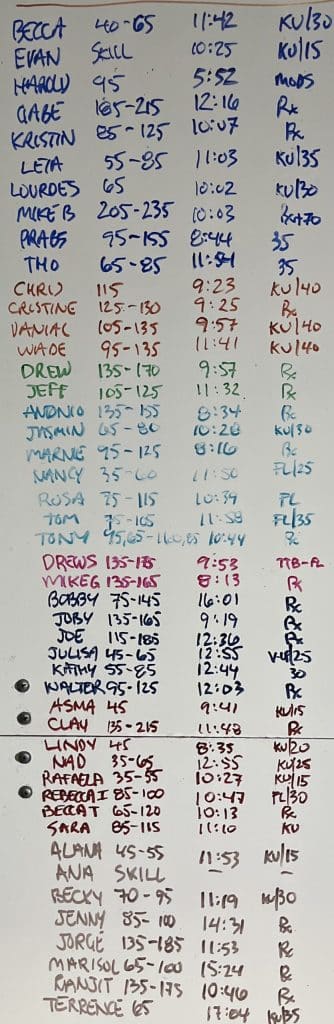 BECCA 40-65 11:42 KU/30
EVAN SKILL 10:25 KU/15
HAROLD 95 5:52 MODS
GABE 185-215 12:16 Rx
KRISTIN 85-125 10:07 Rx
LETA 55-85 11:03 KU/35
LOURDES 65 10:02 KU/30
MIKE B 205-235 10:03 Rx+70
95-155 8:44 35
TMO 65-85 35
CHRIS 115 9:23 KU/40
CRISTINE 125-130 9:25 Rx
105-135 9:57 KU/40
WADE 95-135 11:41 KU/40
DREW 135-170 9:57 Rx
JEFF 105-125 11:32 Rx
ANTONIO 135-155 8:34 Rx
JASMIN 65-80 10:28 KU/30
MARNIE 95-125 8:16 Rx
NANCY 35-60 11:50 FL/25
ROSA 75-115 10:39 FL
TOM 75-105 11:58 FL/35
TONY 10:44 Rx
DREWS 135-185 9:53 TTB-FL
MIKEG 135-165 8:13 Rx
BOBBY 75-145 16:01 Rx
JOBY 135-165 9:19 Rx
JOE 115-185 12:36 Rx
JULISA 45-65 12:55
KATHY 55-85 12:44 30
WALTER 95-125 12:03 Rx
ASMA 45 9:41 KU/15
CLAY 135-215 11:48 Rx
LINDY 45 8:35 KU/20
NAD 35-65 12:55 KU/25
RAFAELA 35-55 10:27 KU/15
REBECCA I 85-100 10:47 FL/30
BECCA T 65-120 10:13 Rx
SARA 85-115 11:10 KU
ALANA 45-55 11:53 KU/15
ANA SKILL – –
BECKY 70-95 11:19 KU/30
JENNY 85-100 14:31 Rx
JORGE 135-185 11:53 Rx
MARISOL 65-100 15:24 Rx
RANJIT 135-175 10:46 Rx
TERRENCE 65 17:04 KU/35